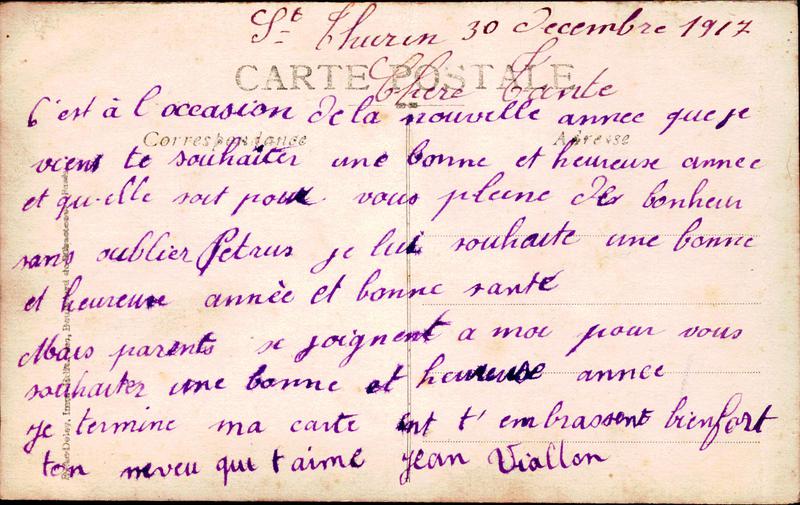 St Thurin 30 Decembre 1917
CARTE POSTALE
Chère Tante
C'est à l'occasion de la nouvelle annee que je
Correspondance Adresse
viens te souhaiter une bonne et heureuse annee
et qu-elle soit pour vous pleine de bonheur
sans oublier Petrus je lui souhaite une bonne
et heureuse année et bonne santé
Mais parents se joignent a moi pour vous
souhaiter une bonne et heureuse annee
je termine ma carte ent t'embrassent bienfort
ton neveu qui t'aime Jean Viallon